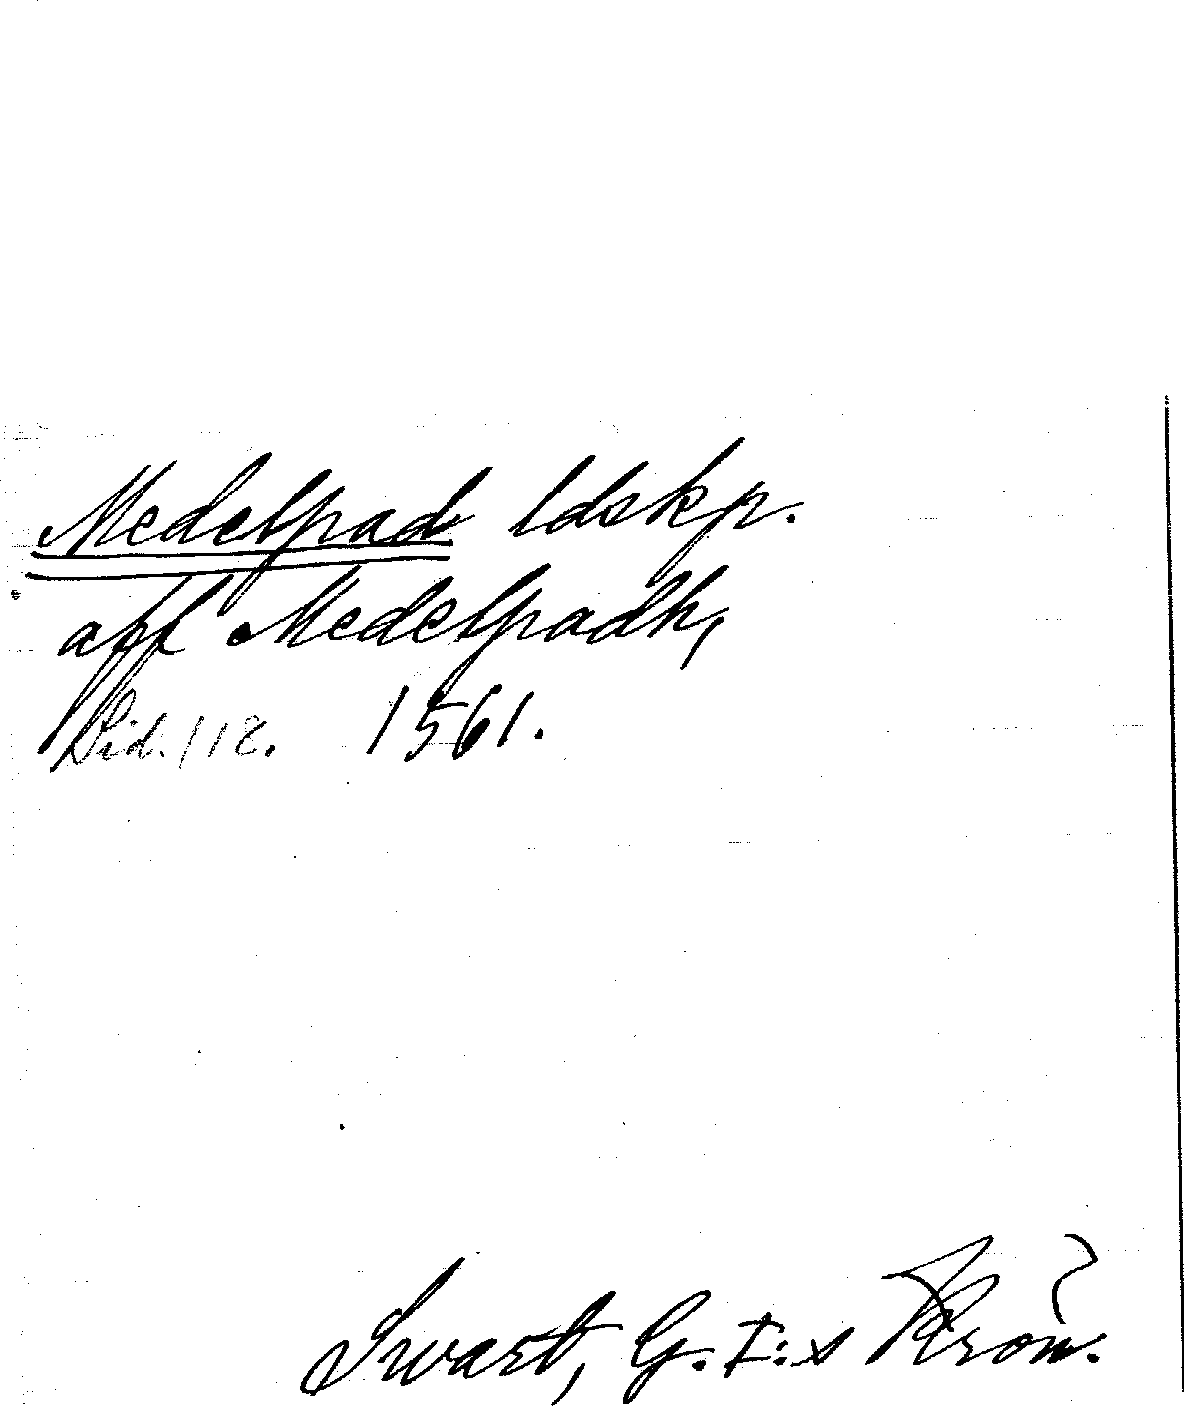 Medelpad ldskp.
aff Medelpadh,
Sid. 112. 1561.
Swart, G. I:s Krön.